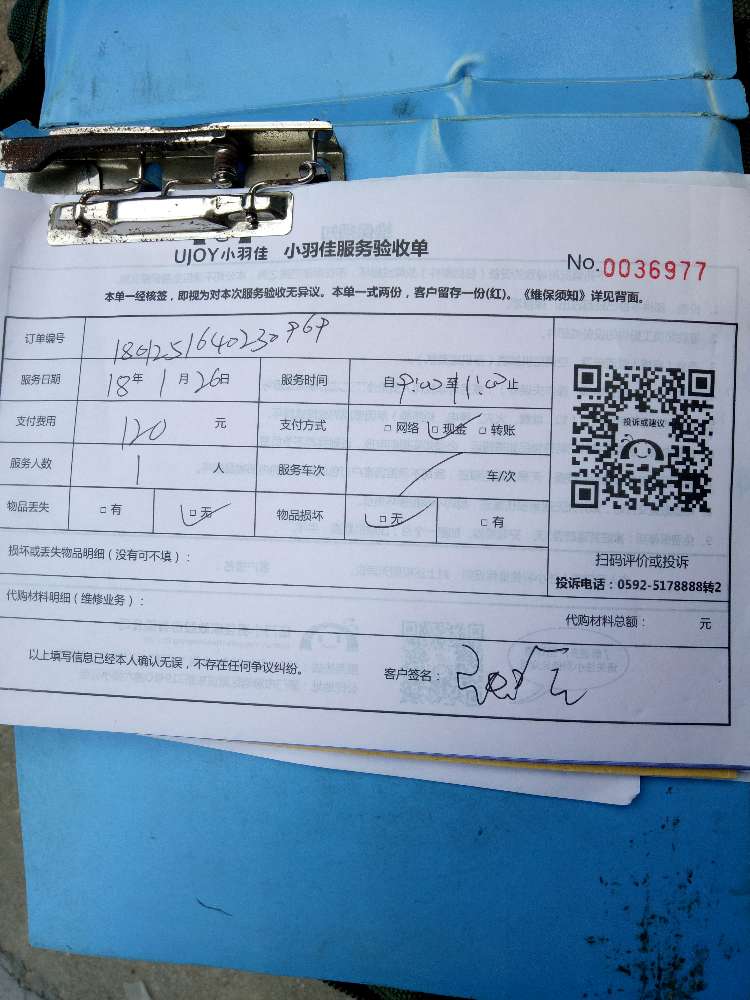 UJOY小羽佳 小羽佳服务验收单
No.0036977
本单一经核签，即视为对本次服务验收无异议。本单一式两份，客户留存一份(红)。《维保须知》详见背面。
订单编号 180125164023096P
服务日期 18年1月26日 服务时间 自9:00至11:00止
支付费用 120 元 支付方式 □网络 □现金 □转账
服务人数 1 人 服务车次 车/次
物品丢失 □有 □无 物品损坏 □无 □有
投诉或建议
扫码评价或投诉
投诉电话：0592-5178888转2
损坏或丢失物品明细（没有可不填）：
代购材料明细（维修业务）： 代购材料总额： 元
以上填写信息已经本人确认无误，不存在任何争议纠纷。 客户签名：